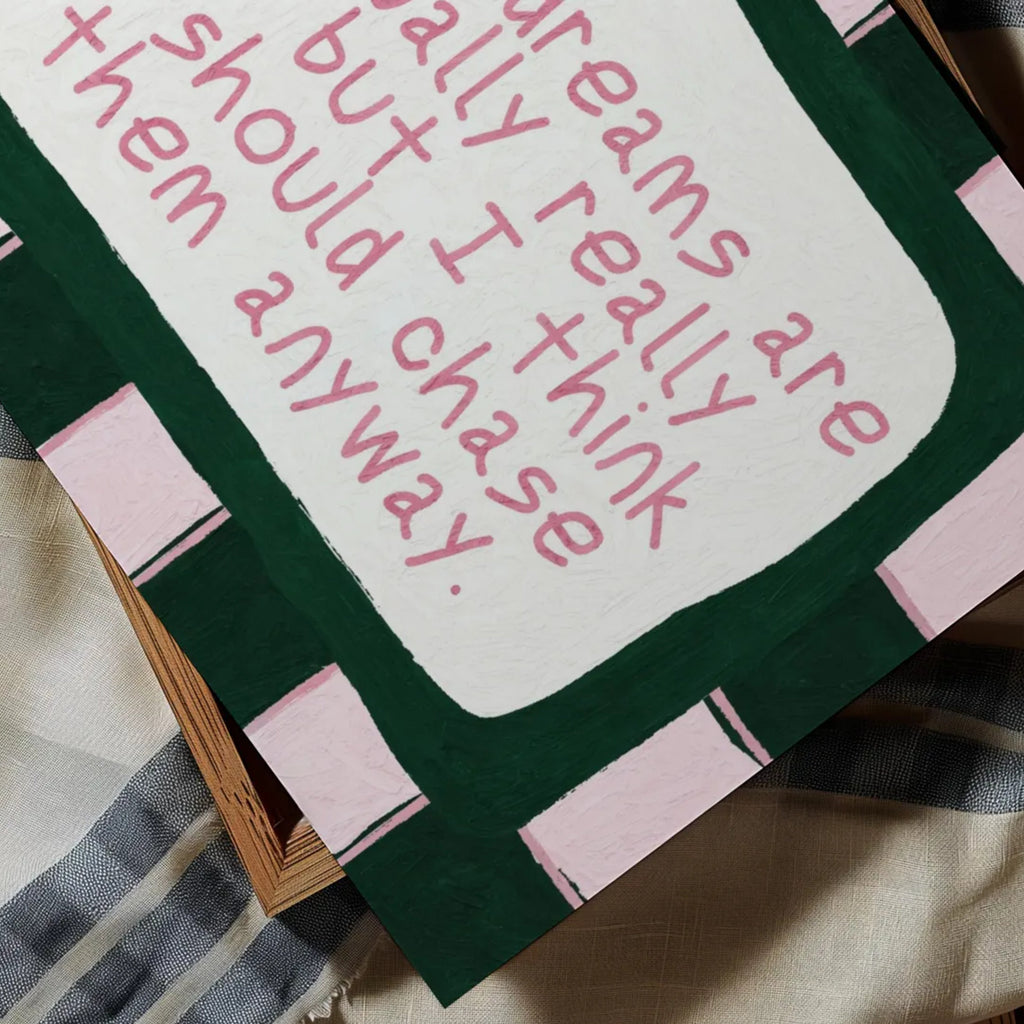 dreams are
ally really
but I think
should chase
them anyway.